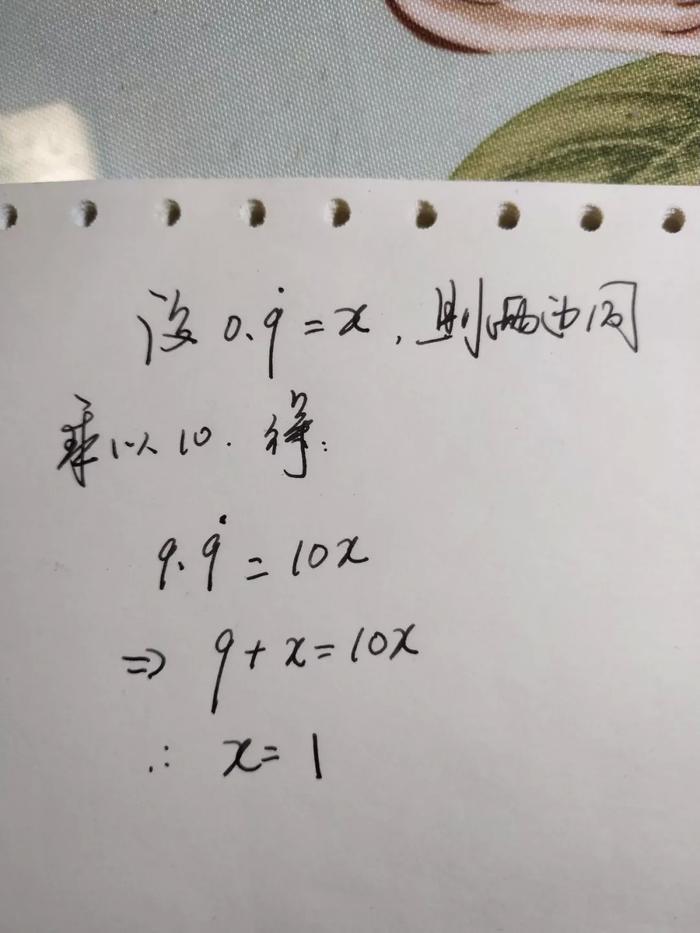 设 0.9̇ = x , 则两边同
乘以 10 . 得:
9.9̇ = 10x
⇒ 9 + x = 10x
∴ x = 1